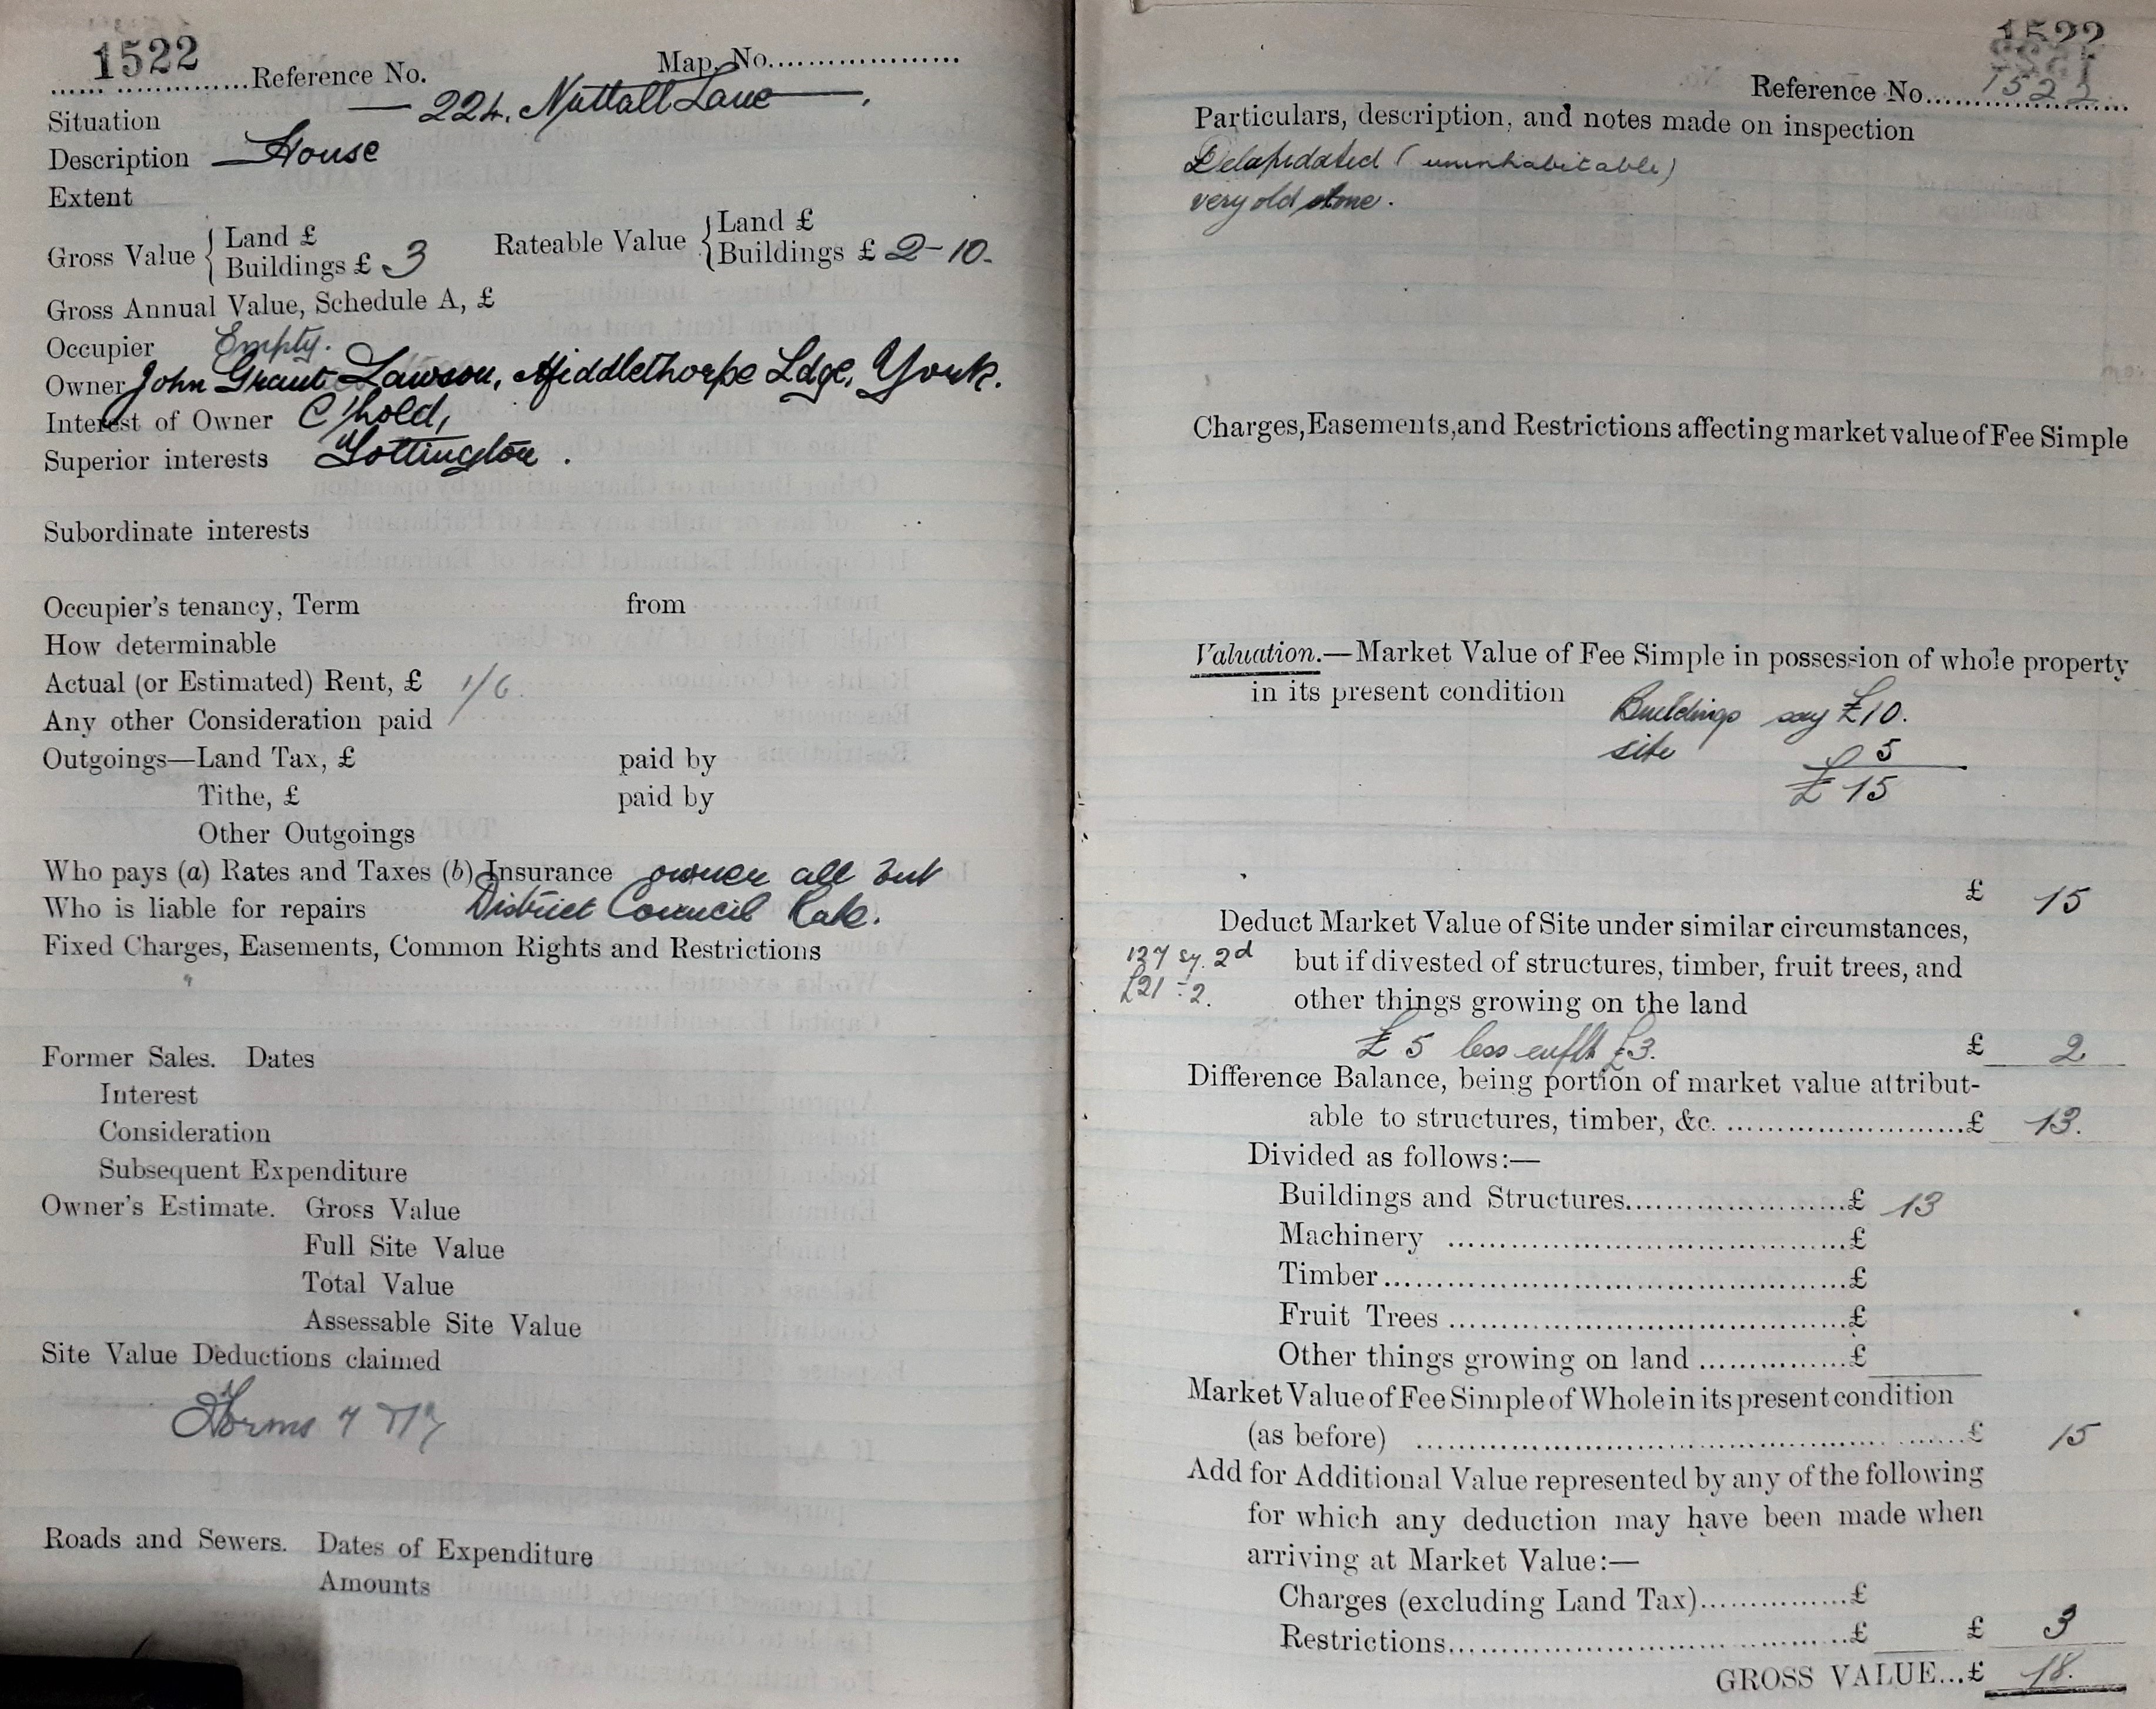 1522 Reference No. Map. No.
Situation — 224. Nuttall Lane —,
Description — House
Extent
Gross Value { Land £
Buildings £ 3
Rateable Value { Land £
Buildings £ 2-10.
Gross Annual Value, Schedule A, £
Occupier Empty.
Owner John Grant Lawson, Middlethorpe Ldge, York.
Interest of Owner C'hold,
Superior interests Tottington.
Subordinate interests
Occupier's tenancy, Term from
How determinable
Actual (or Estimated) Rent, £ 1/6.
Any other Consideration paid
Outgoings—Land Tax, £ paid by
Tithe, £ paid by
Other Outgoings
Who pays (a) Rates and Taxes (b) Insurance owner all but
Who is liable for repairs District Council Rate.
Fixed Charges, Easements, Common Rights and Restrictions
Former Sales. Dates
Interest
Consideration
Subsequent Expenditure
Owner's Estimate. Gross Value
Full Site Value
Total Value
Assessable Site Value
Site Value Deductions claimed
Forms 7
Roads and Sewers. Dates of Expenditure
Amounts
1522
Reference No. 1522
Particulars, description, and notes made on inspection
Delapidated (uninhabitable)
very old stone.
Charges, Easements, and Restrictions affecting market value of Fee Simple
Valuation.—Market Value of Fee Simple in possession of whole property
in its present condition
Buildings say £10.
site 5
£ 15
£ 15
Deduct Market Value of Site under similar circumstances,
127 sy. 2d but if divested of structures, timber, fruit trees, and
£21-2. other things growing on the land
£5 less £3. £ 2
Difference Balance, being portion of market value attribut-
able to structures, timber, &c. £ 13.
Divided as follows:—
Buildings and Structures £ 13
Machinery £
Timber £
Fruit Trees £
Other things growing on land £
Market Value of Fee Simple of Whole in its present condition
(as before) £ 15
Add for Additional Value represented by any of the following
for which any deduction may have been made when
arriving at Market Value:—
Charges (excluding Land Tax) £
Restrictions £ £ 3
GROSS VALUE...£ 18.